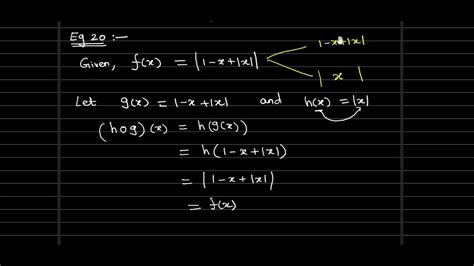 Eg 20 :-
1-x+|x|
Given, f(x) = |1-x+|x||
| x |
Let g(x) = 1-x+|x| and h(x) = |x|
(hog)(x) = h(g(x))
= h(1-x+|x|)
= |1-x+|x||
= f(x)